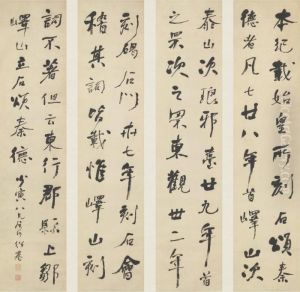 本紀載始皇所刻石頌
德者凡七廿八年首嶧山次
泰山次琅邪臺廿九年首
之罘次之罘東觀卅二年
刻碣石門卅七年刻石會
稽其詞皆載惟嶧山刻
詞不著但云東行郡縣上鄒
嶧山立石頌秦德 少寅八兄屬 何紹基